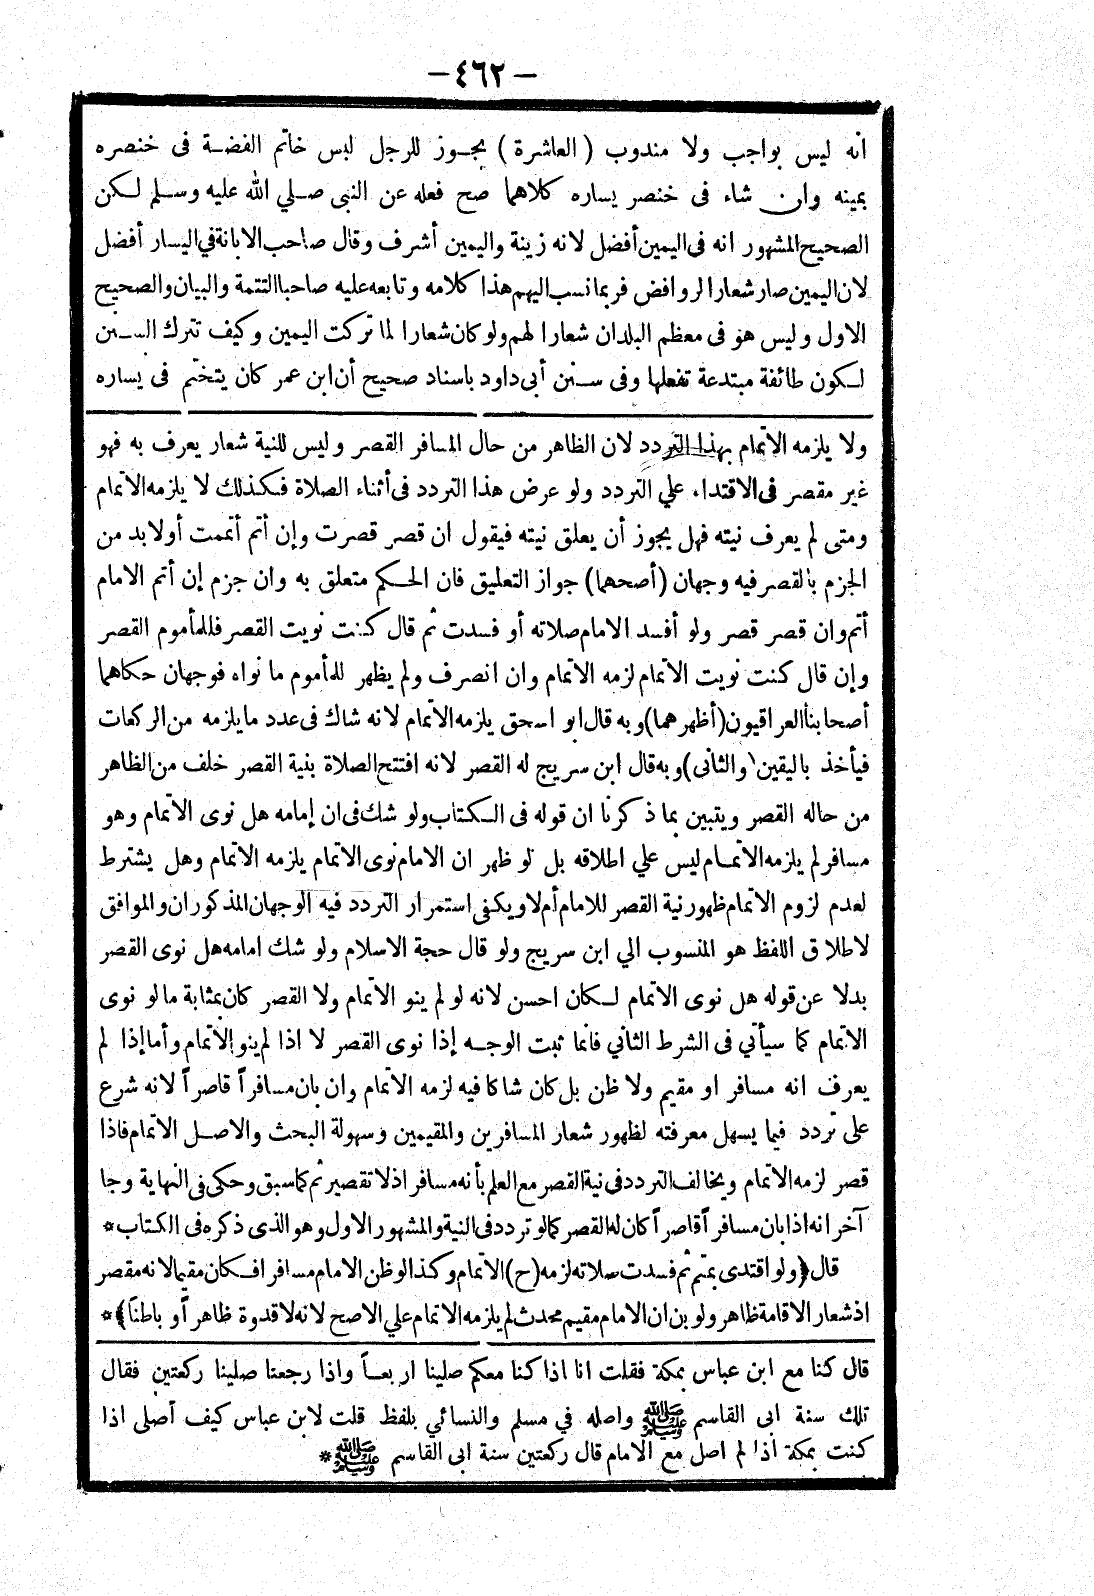 — ٤٦٢ —
أنه ليس بواجب ولا مندوب ( العاشرة ) يجوز للرجل لبس خاتم الفضة فى خنصره
يمينه وإن شاء فى خنصر يساره كلاهما صح فعله عن النبى صلي الله عليه وسلم لكن
الصحيح المشهور انه فى اليمين أفضل لانه زينة واليمين أشرف وقال صاحب الابانة في اليسار أفضل
لان اليمين صار شعار الروافض فربما نسب اليهم هذا كلامه وتابعه عليه صاحبا التتمة والبيان والصحيح
الاول وليس هو فى معظم البلدان شعارا لهم ولو كان شعارا لما تركت اليمين وكيف تترك السنن
لكون طائفة مبتدعة تفعلها وفى سنن أبى داود باسناد صحيح أن ابن عمر كان يتختم فى يساره
ولا يلزمه الاتمام بهذا التردد لان الظاهر من حال المسافر القصر وليس للنية شعار يعرف به فهو
غير مقصر فى الاقتداء علي التردد ولو عرض هذا التردد فى أثناء الصلاة فكذلك لا يلزمه الاتمام
ومتى لم يعرف نيته فهل يجوز أن يعلق نيته فيقول ان قصر قصرت وإن أتم أتممت أولا بد من
الجزم بالقصر فيه وجهان (أصحهما) جواز التعليق فان الحكم متعلق به وان جزم إن أتم الامام
أتم وان قصر قصر ولو أفسد الامام صلاته أو فسدت ثم قال كنت نويت القصر فللمأموم القصر
وإن قال كنت نويت الاتمام لزمه الاتمام وان انصرف ولم يظهر للمأموم ما نواه فوجهان حكاهما
أصحابنا العراقيون (أظهرهما) وبه قال ابو اسحق يلزمه الاتمام لانه شاك فى عدد ما يلزمه من الركعات
فيأخذ باليقين (والثانى) وبه قال ابن سريج له القصر لانه افتتح الصلاة بنية القصر خلف من الظاهر
من حاله القصر ويتبين بما ذكرنا ان قوله فى الكتاب ولو شك فى ان إمامه هل نوى الاتمام وهو
مسافر لم يلزمه الاتمام ليس علي اطلاقه بل لو ظهر ان الامام نوى الاتمام يلزمه الاتمام وهل يشترط
لعدم لزوم الاتمام ظهور نية القصر للامام أم لا ويكفى استمرار التردد فيه الوجهان المذكوران والموافق
لاطلاق اللفظ هو المنسوب الي ابن سريج ولو قال حجة الاسلام ولو شك امامه هل نوى القصر
بدلا عن قوله هل نوى الاتمام لكان احسن لانه لو لم ينو الاتمام ولا القصر كان بمثابة ما لو نوى
الاتمام كما سيأتي فى الشرط الثاني فانما ثبت الوجه إذا نوى القصر لا اذا لم ينو الاتمام وأما إذا لم
يعرف انه مسافر او مقيم ولا ظن بل كان شاكا فيه لزمه الاتمام وان بان مسافراً قاصراً لانه شرع
على تردد فيما يسهل معرفته لظهور شعار المسافرين والمقيمين وسهولة البحث والاصل الاتمام فاذا
قصر لزمه الاتمام ويخالف التردد فى نية القصر مع العلم بأنه مسافر اذ لا تقصير ثم كما سبق وحكى فى النهاية وجا
آخر انه اذا بان مسافراً قاصراً كان له القصر كما لو تردد فى النية والمشهور الاول وهو الذى ذكره فى الكتاب *
قال ﴿ ولو اقتدى بمتم ثم فسدت صلاته لزمه (ح) الاتمام وكذا لو ظن الامام مسافرا فكان مقيما لانه مقصر
اذ شعار الاقامة ظاهر ولو بن ان الامام مقيم محدث لم يلزمه الاتمام علي الاصح لانه لا قدوة ظاهراً و باطناً ﴾ *
قال كنا مع ابن عباس بمكة فقلت انا اذا كنا معكم صلينا اربعاً واذا رجعنا صلينا ركعتين فقال
تلك سنة ابى القاسم ﷺ واصله في مسلم والنسائي بلفظ قلت لابن عباس كيف أصلى اذا
كنت بمكة اذا لم اصل مع الامام قال ركعتين سنة ابى القاسم ﷺ *